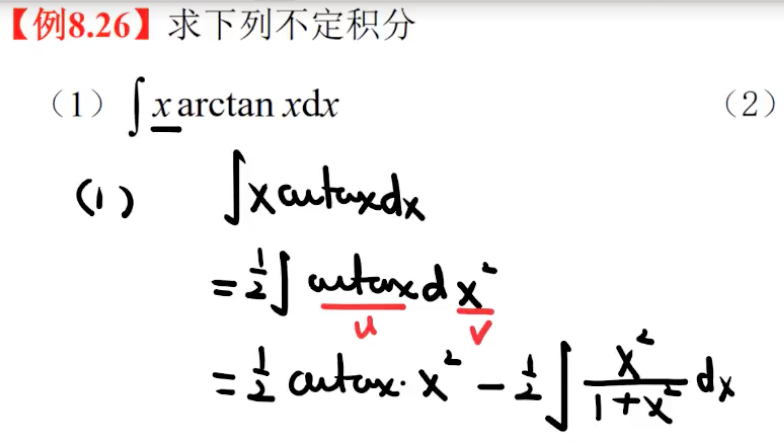 【例8.26】求下列不定积分
（1）∫ x arctan xdx （2）
(1) ∫x arctanx dx
= 1/2 ∫ arctanx d x²
u v
= 1/2 arctanx · x² − 1/2 ∫ x²/(1+x²) dx